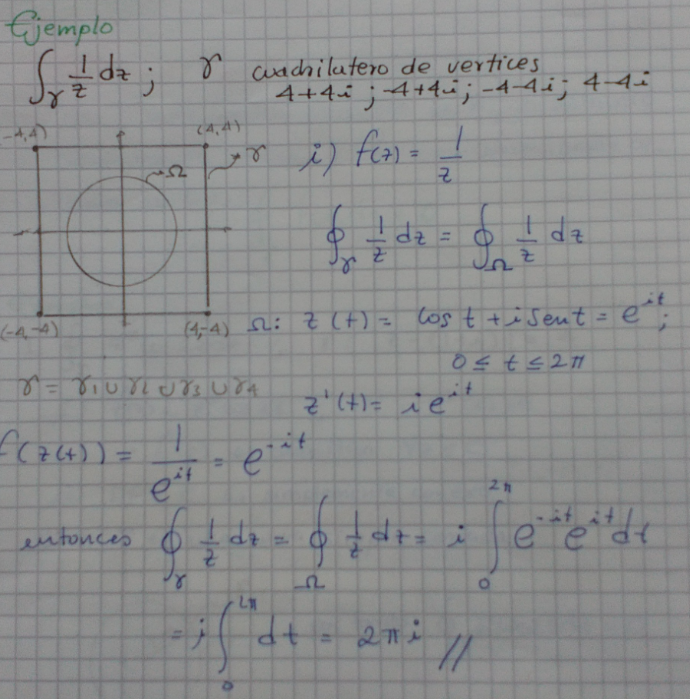 Ejemplo
∫_γ 1/z dz ; γ cuadrilatero de vertices
4+4i ; -4+4i ; -4-4i ; 4-4i
-4,4) (4,4)
Ω γ
(-4,-4) (4,-4)
i) f(z) = 1/z
∮_γ 1/z dz = ∮_Ω 1/z dz
Ω: z(t) = cos t + i sen t = e^{it} ;
0 ≤ t ≤ 2π
γ = γ1 ∪ γ2 ∪ γ3 ∪ γ4
z'(t) = i e^{it}
f(z(t)) = 1/e^{it} = e^{-it}
entonces ∮_γ 1/z dz = ∮_Ω 1/z dz = i ∫_0^{2π} e^{-it} e^{it} dt
= i ∫_0^{2π} dt = 2πi //